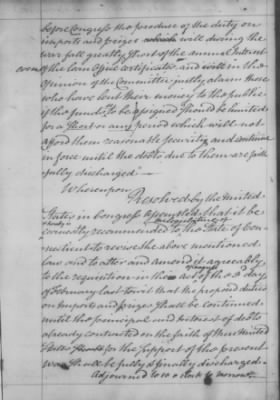 before Congress the produce of the duty on
imports and prizes which will during the
war fall greatly short of the annual Interest
of the Loan Office certificates and will in the
opinion of the Committee justly alarm those
who have lent their money to the public
if the funds to be assigned should be limited
for a short or any period which will not
afford them reasonable security and continue
in force until the debts due to them are faith
fully discharged —
Whereupon
Resolved by the United
States in Congress Assembled that it be
earnestly recommended to the State of Con
necticut to revise the above mentioned
law and to alter and amend it agreeably
to the requisition in the act of the 3d day
of February last so that the proposed duties
on Imports and prizes shall be continued
until the principal and Interest of debts
already contracted on the faith of the United
States for the Support of the present
War shall be fully & finally discharged.
Adjourned to 10 o Clock to morrow